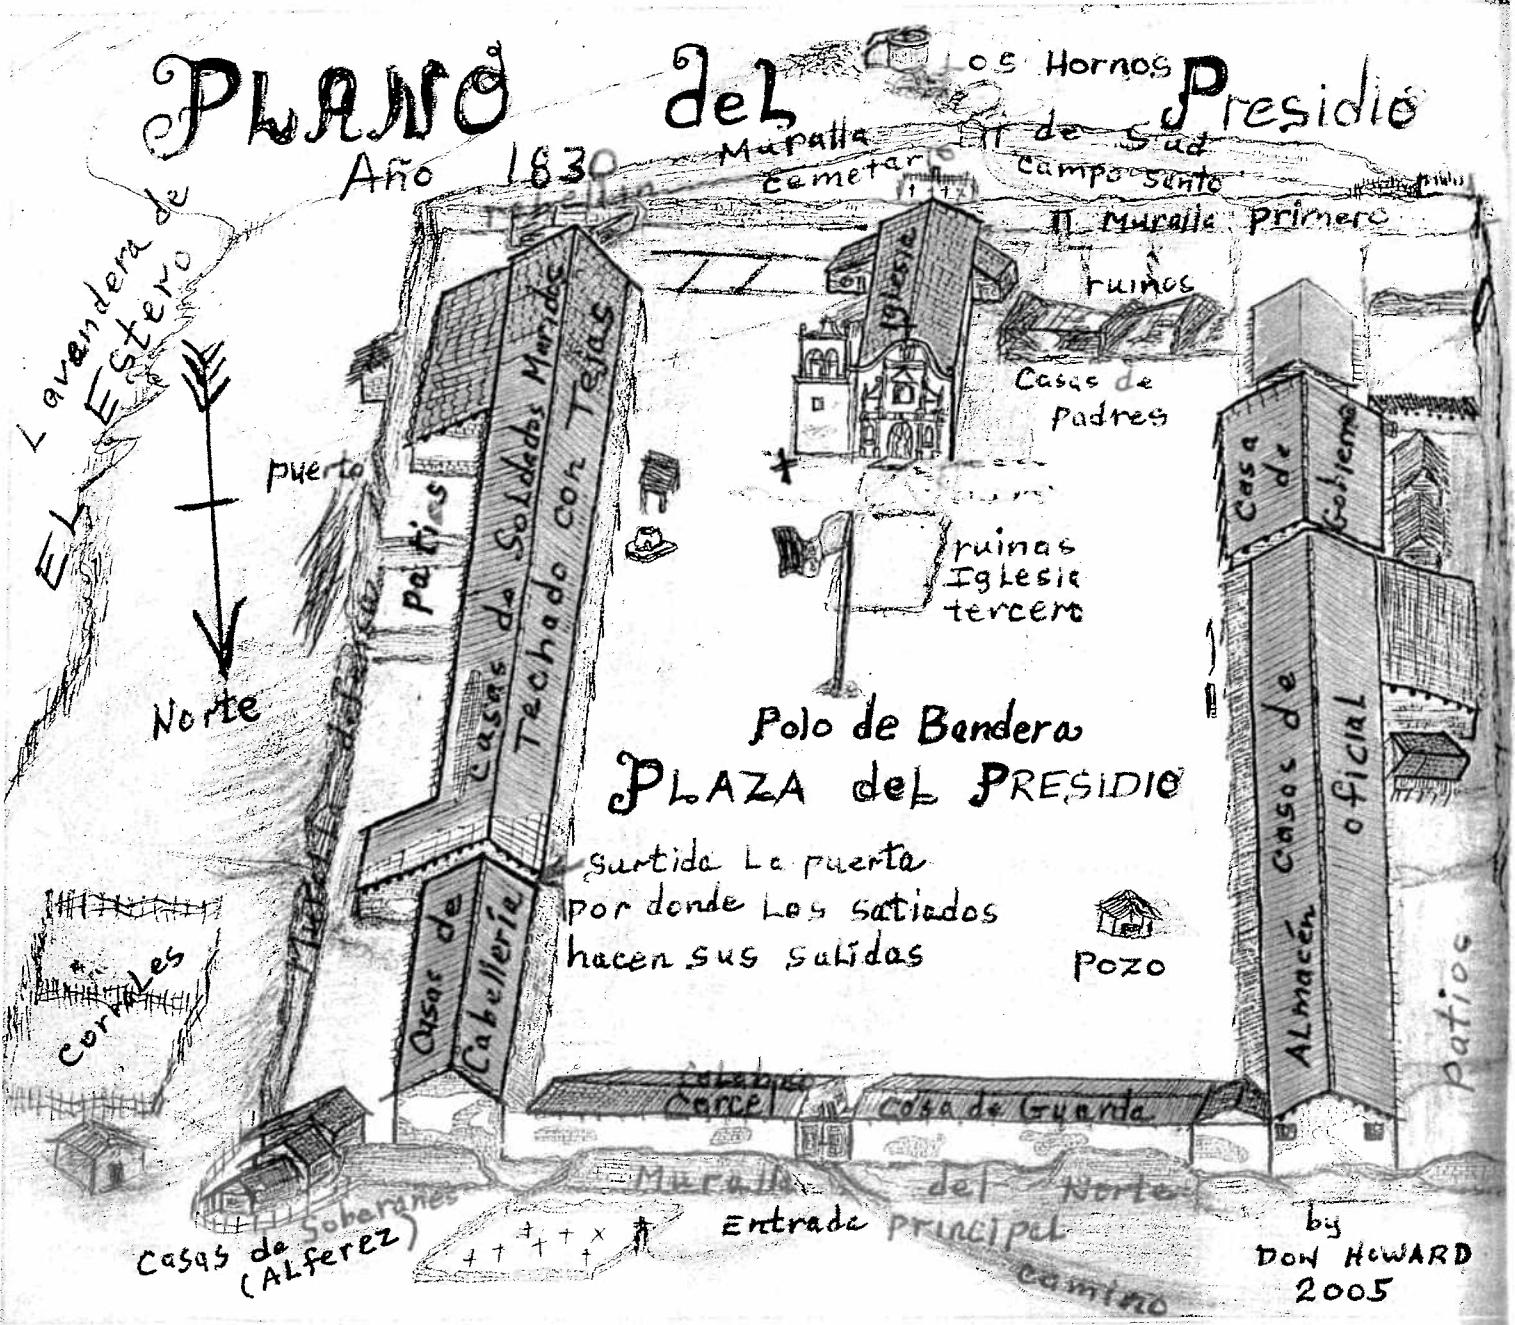 PLANO del Presidio
Año 1830
Los Hornos
Muralla de Sud
cemetario campo santo
II Muralla primero
ruinas
Iglesia
Casas de
Padres
Lavandera de
EL Estero
Norte
puerto
patios
Casas de Soldados
Techado con Tejas
Casa
de
Gobierno
ruinas
Iglesia
tercero
Polo de Bandera
PLAZA del PRESIDIO
surtida La puerta
por donde Los satiados
hacen sus salidas
Pozo
Almacén Casas de
oficial
patios
Casas de
Caballería
Corrales
Carcel
casa de Guarda
Muralla del Norte
Entrada principal
camino
Casas de Soberanes
(ALferez)
by
DON HOWARD
2005